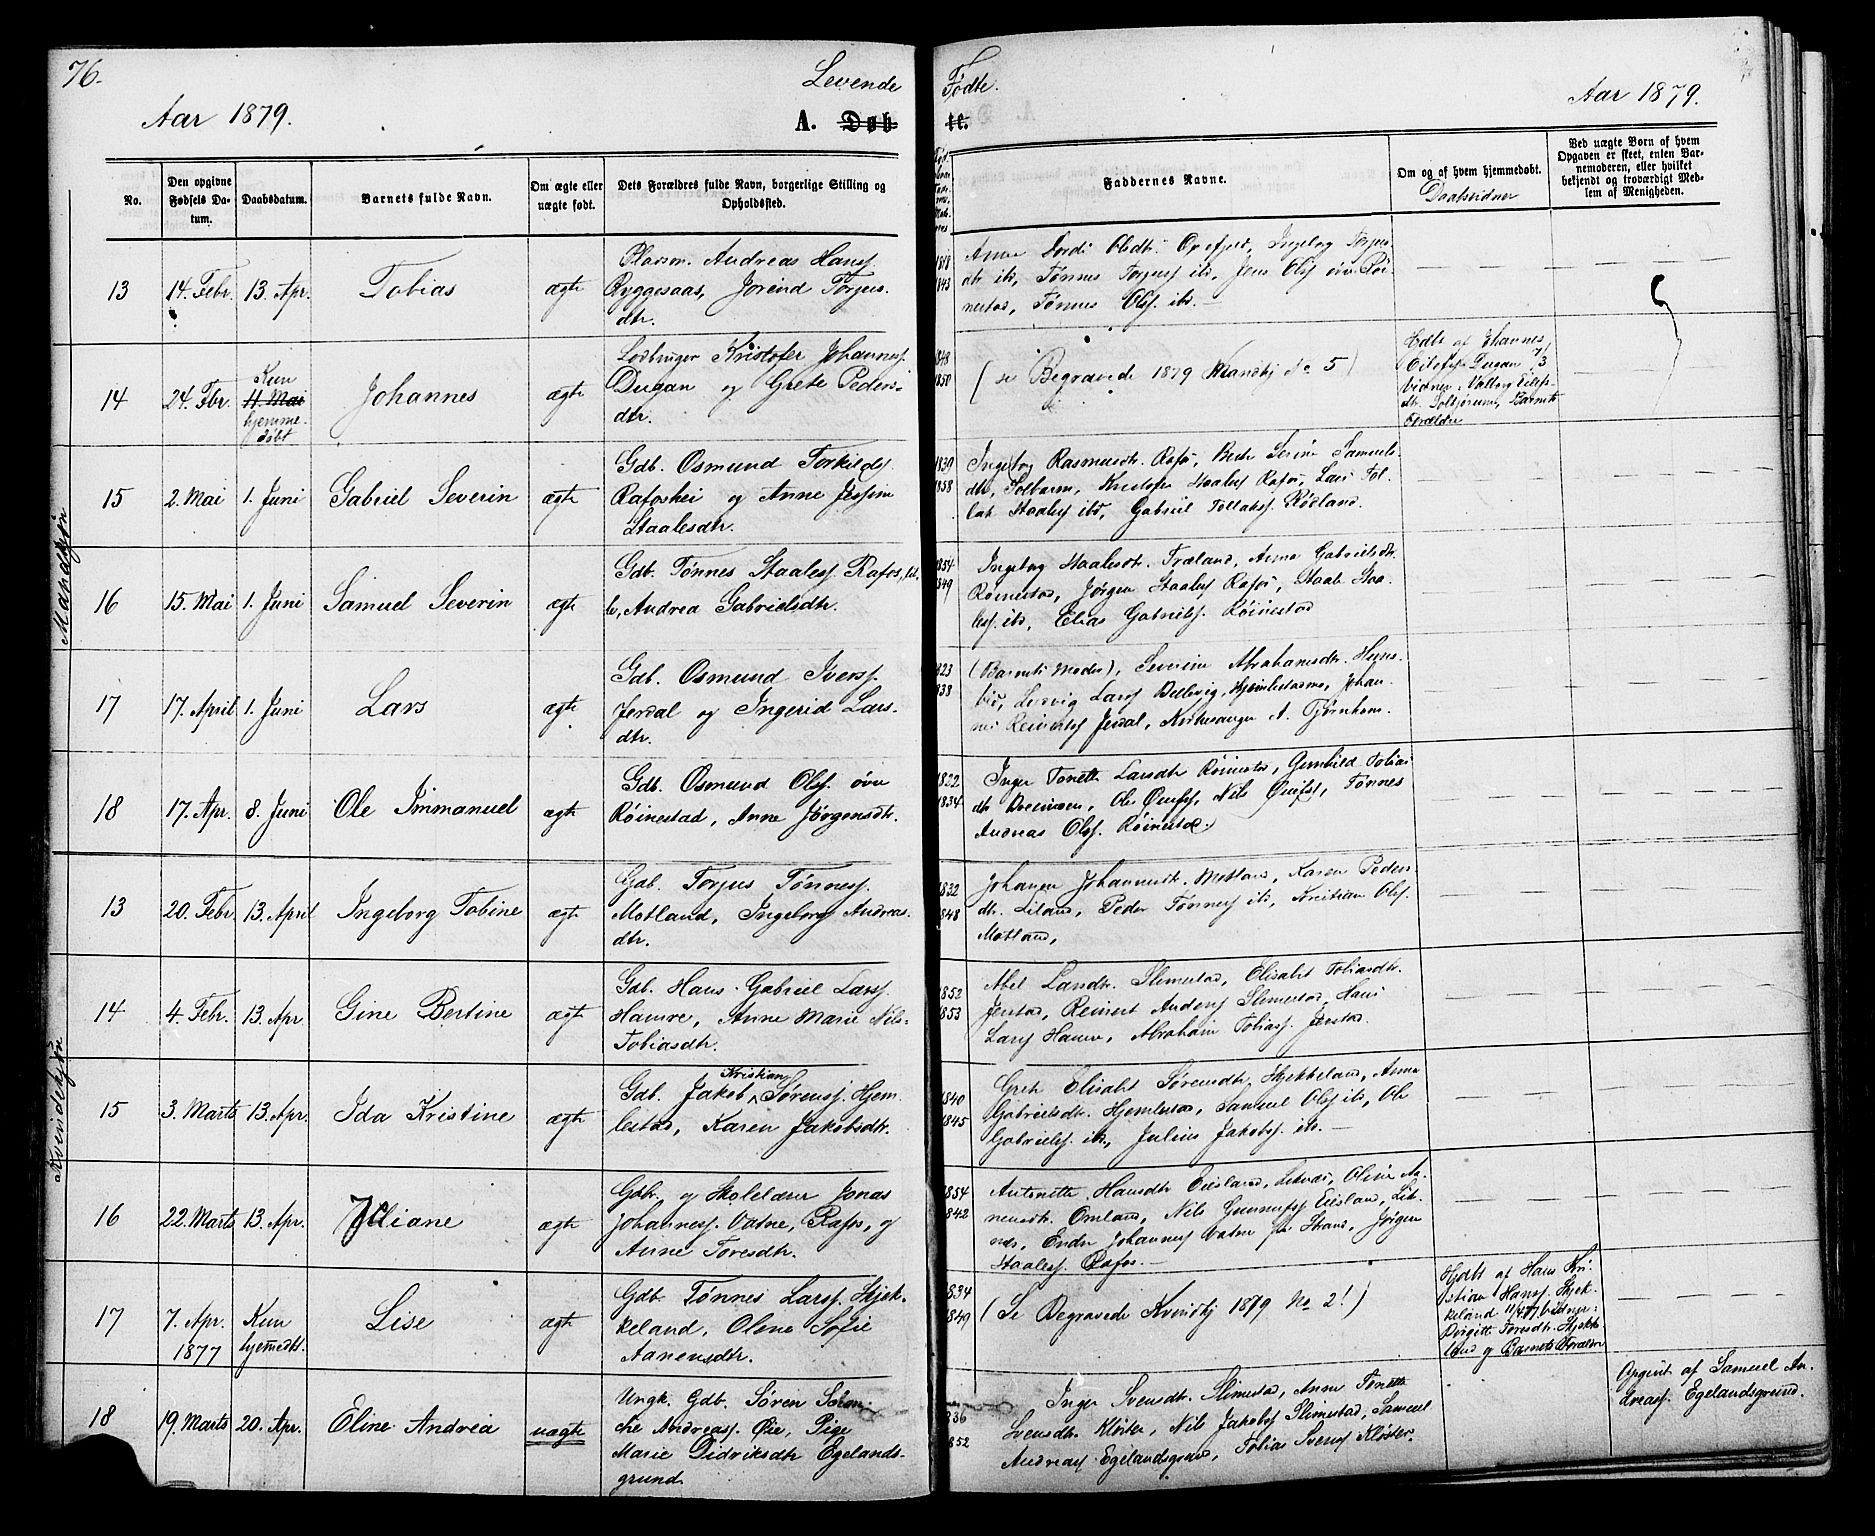 76.
Levende
Fødte.
Aar 1879.
Aar 1879.
A. Døb-
te.
No.
Den opgivne Fødsels Da-
tum.
Daabsdatum.
Barnets fulde Navn.
Om ægte eller
uægte født.
Dets Forældres fulde Navn, borgerlige Stilling og
Opholdssted.
Faddernes Navne.
Om og af hvem hjemmedøbt.
Daabsvidner
Ved uægte Børn af hvem
Opgaven er skeet, enten Bar-
nemoderen, eller hvilket
bekjendt og troværdigt Med-
lem af Menigheden.
Mandkjøn
13
14. Febr.
13. Apr.
Tobias
ægte
Andreas Hanss.
Ryggesaas, Jorind Torjus-
dtr.
1818
1843
Anna Olsdtr. Ingeborg Torjus-
dtr ibd, Tønnes Torjuss ibd, Jens Olss øvre Røi-
nestad, Tønnes Olss. ibd.
14
24. Fbr.
Kun
11. Mai
hjemme-
døbt
Johannes
ægte
Kristofer Johanness.
Dugan og Grete Peders-
dtr.
1848
1850
(se Begravede 1879 Mandkj No 5)
Hdbt af Johannes
Dugan 7/3
Vidner: Valborg
Barnets
Forældre
15
2. Mai
1. Juni
Gabriel Severin
ægte
Gdb. Osmund Torkilds.
Rafoshei og Anne Jessine
Staalesdtr.
1839
1858
Ingeborg Rasmusdtr. Rafos, Serine Samuels-
dtr, Staaless Rafos, Lars Tol-
lak Staaless ibd, Gabriel Tollakss. Rødland.
16
15. Mai
1. Juni
Samuel Severin
ægte
Gdb. Tønnes Staaless Rafos,
Andrea Gabrielsdtr.
1854
1849
Ingeborg Staalesdtr. Træland, Anna Gabrielsdtr.
Røinestad, Jørgen Staaless Rafos, Staale Staa-
less. ibd, Elias Gabrielss. Røinestad
17
17. April
1. Juni
Lars
ægte
Gdb. Osmund Iverss.
Jerdal og Ingerid Lars-
dtr.
1823
1838
(Barnets Moder), Severine Abrahamsdtr.
Larss Johan-
nes Jerdal, Kirkesanger A. Tjørnhom.
18
17. Apr.
8. Juni
Ole Immanuel
ægte
Gdb. Osmund Olss. øvre
Røinestad, Anne Jørgensdtr.
1822
1834
Inger Tonette Larsdtr Røinestad, Gunhild Tobias
dtr Ole Nils Tønnes
Andreas Olss. Røinestad.
Kvindekjøn
13
20. Febr.
13. April
Ingeborg Tobine
ægte
Gdb. Torjus Tønness.
Motland, Ingeborg Andreas-
dtr.
1832
1848
Johanne Johannesdtr. Motland, Karen Peders-
dtr. Liland, Peder Tønness ibd, Kristian Olss.
Motland,
14
4. Febr.
13. Apr.
Gine Bertine
ægte
Gdb. Hans Gabriel Larss.
Hamre, Anne Marie Nils-
Tobiasdtr.
1852
1853
Abel Larsdtr. Slimestad, Elisabet Tobiasdtr.
Jerstad, Reinert Anderss Slimestad, Hans
Larss Hamre, Abraham Tobiass. Jerstad.
15
3. Marts
13. Apr.
Ida Kristine
ægte
Kristian
Gdb. Jakob Sørenss. Hjem-
lestad, Karen Jakobsdtr.
1840
1845
Grete Elisabet Sørensdtr. Hjekkeland, Anna
Gabrielsdtr. Hjemlestad, Samuel Olss ibd, Ole
Gabrielss. ibd, Julius Jakobss. ibd.
16
22. Marts
13. Apr.
Juliane
ægte
Gdb. og Skolelærer Jonas
Johanness. Vatne, Rafos, og
Anne Toresdtr.
1854
1842
Antonette Hansdtr Eiesland, Olene Aa-
nensdtr. Omland, Nils Gunnufss Eiesland,
Endre Johanness Vatne Jørgen
Staaless. Rafos.
17
7. Apr.
1877
Kun
hjemedt.
Lise
ægte
Gdb. Tønnes Larss. Hjek-
keland, Olene Sofie
Aanensdtr.
1834
1849
(Se Begravede Kvindkj 1879 No 2!)
Hjdbt af Hans Kri-
stian Hanss. Hjek-
keland 11/4 77 Vidner:
Birgitte Toresdtr. Hjekke-
land og Barnets Forældre
18
19. Marts
20. Apr.
Eline Andrea
uægte
Ungk. Gdb. Søren
Andreass. Øie, Pige
Marie Didriksdtr Egelands-
grund
1836
1852
Inger Svensdtr. Slimestad, Anne Tonette
Svensdtr. Kloster, Nils Jakobss Slimestad, Samuel
Andreass Egelandsgrund, Tobias Svenss Kloster.
Opgivet af Samuel An-
dreass. Egelandsgrund.